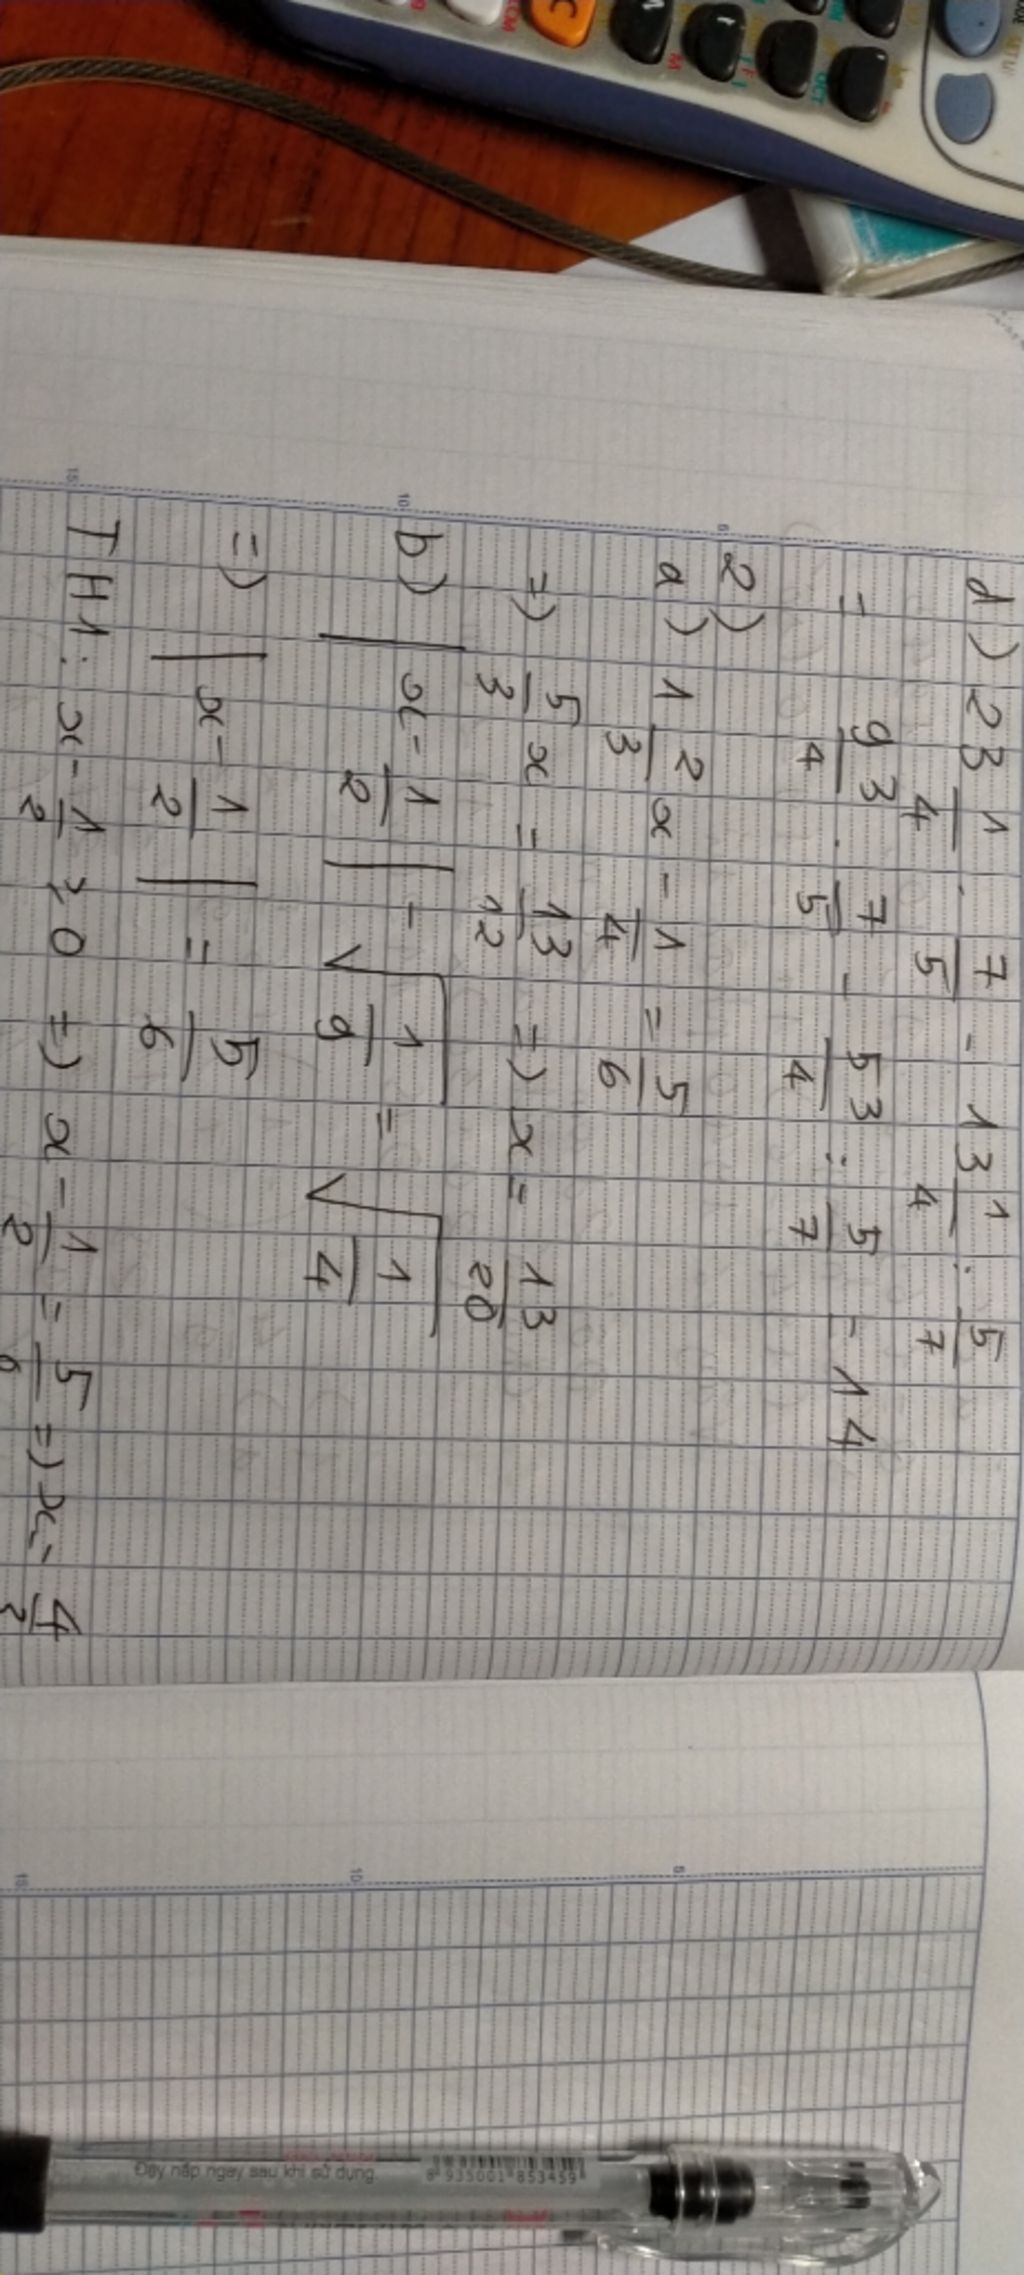 d) 23 1/4 . 7/5 - 13 1/4 : 5/7
= 93/4 . 7/5 - 53/4 : 5/7 = 14
2)
a) 1 2/3 x - 1/4 = 5/6
=) 5/3 x = 13/12 =) x = 13/20
b) | x - 1/2 | - √1/9 = √1/4
=) | x - 1/2 | = 5/6
TH1: x - 1/2 ≥ 0 =) x - 1/2 = 5/6 =) x = 4/3
5
10
15
5
10
15
Đậy nắp ngay sau khi sử dụng.
8 935001 853459